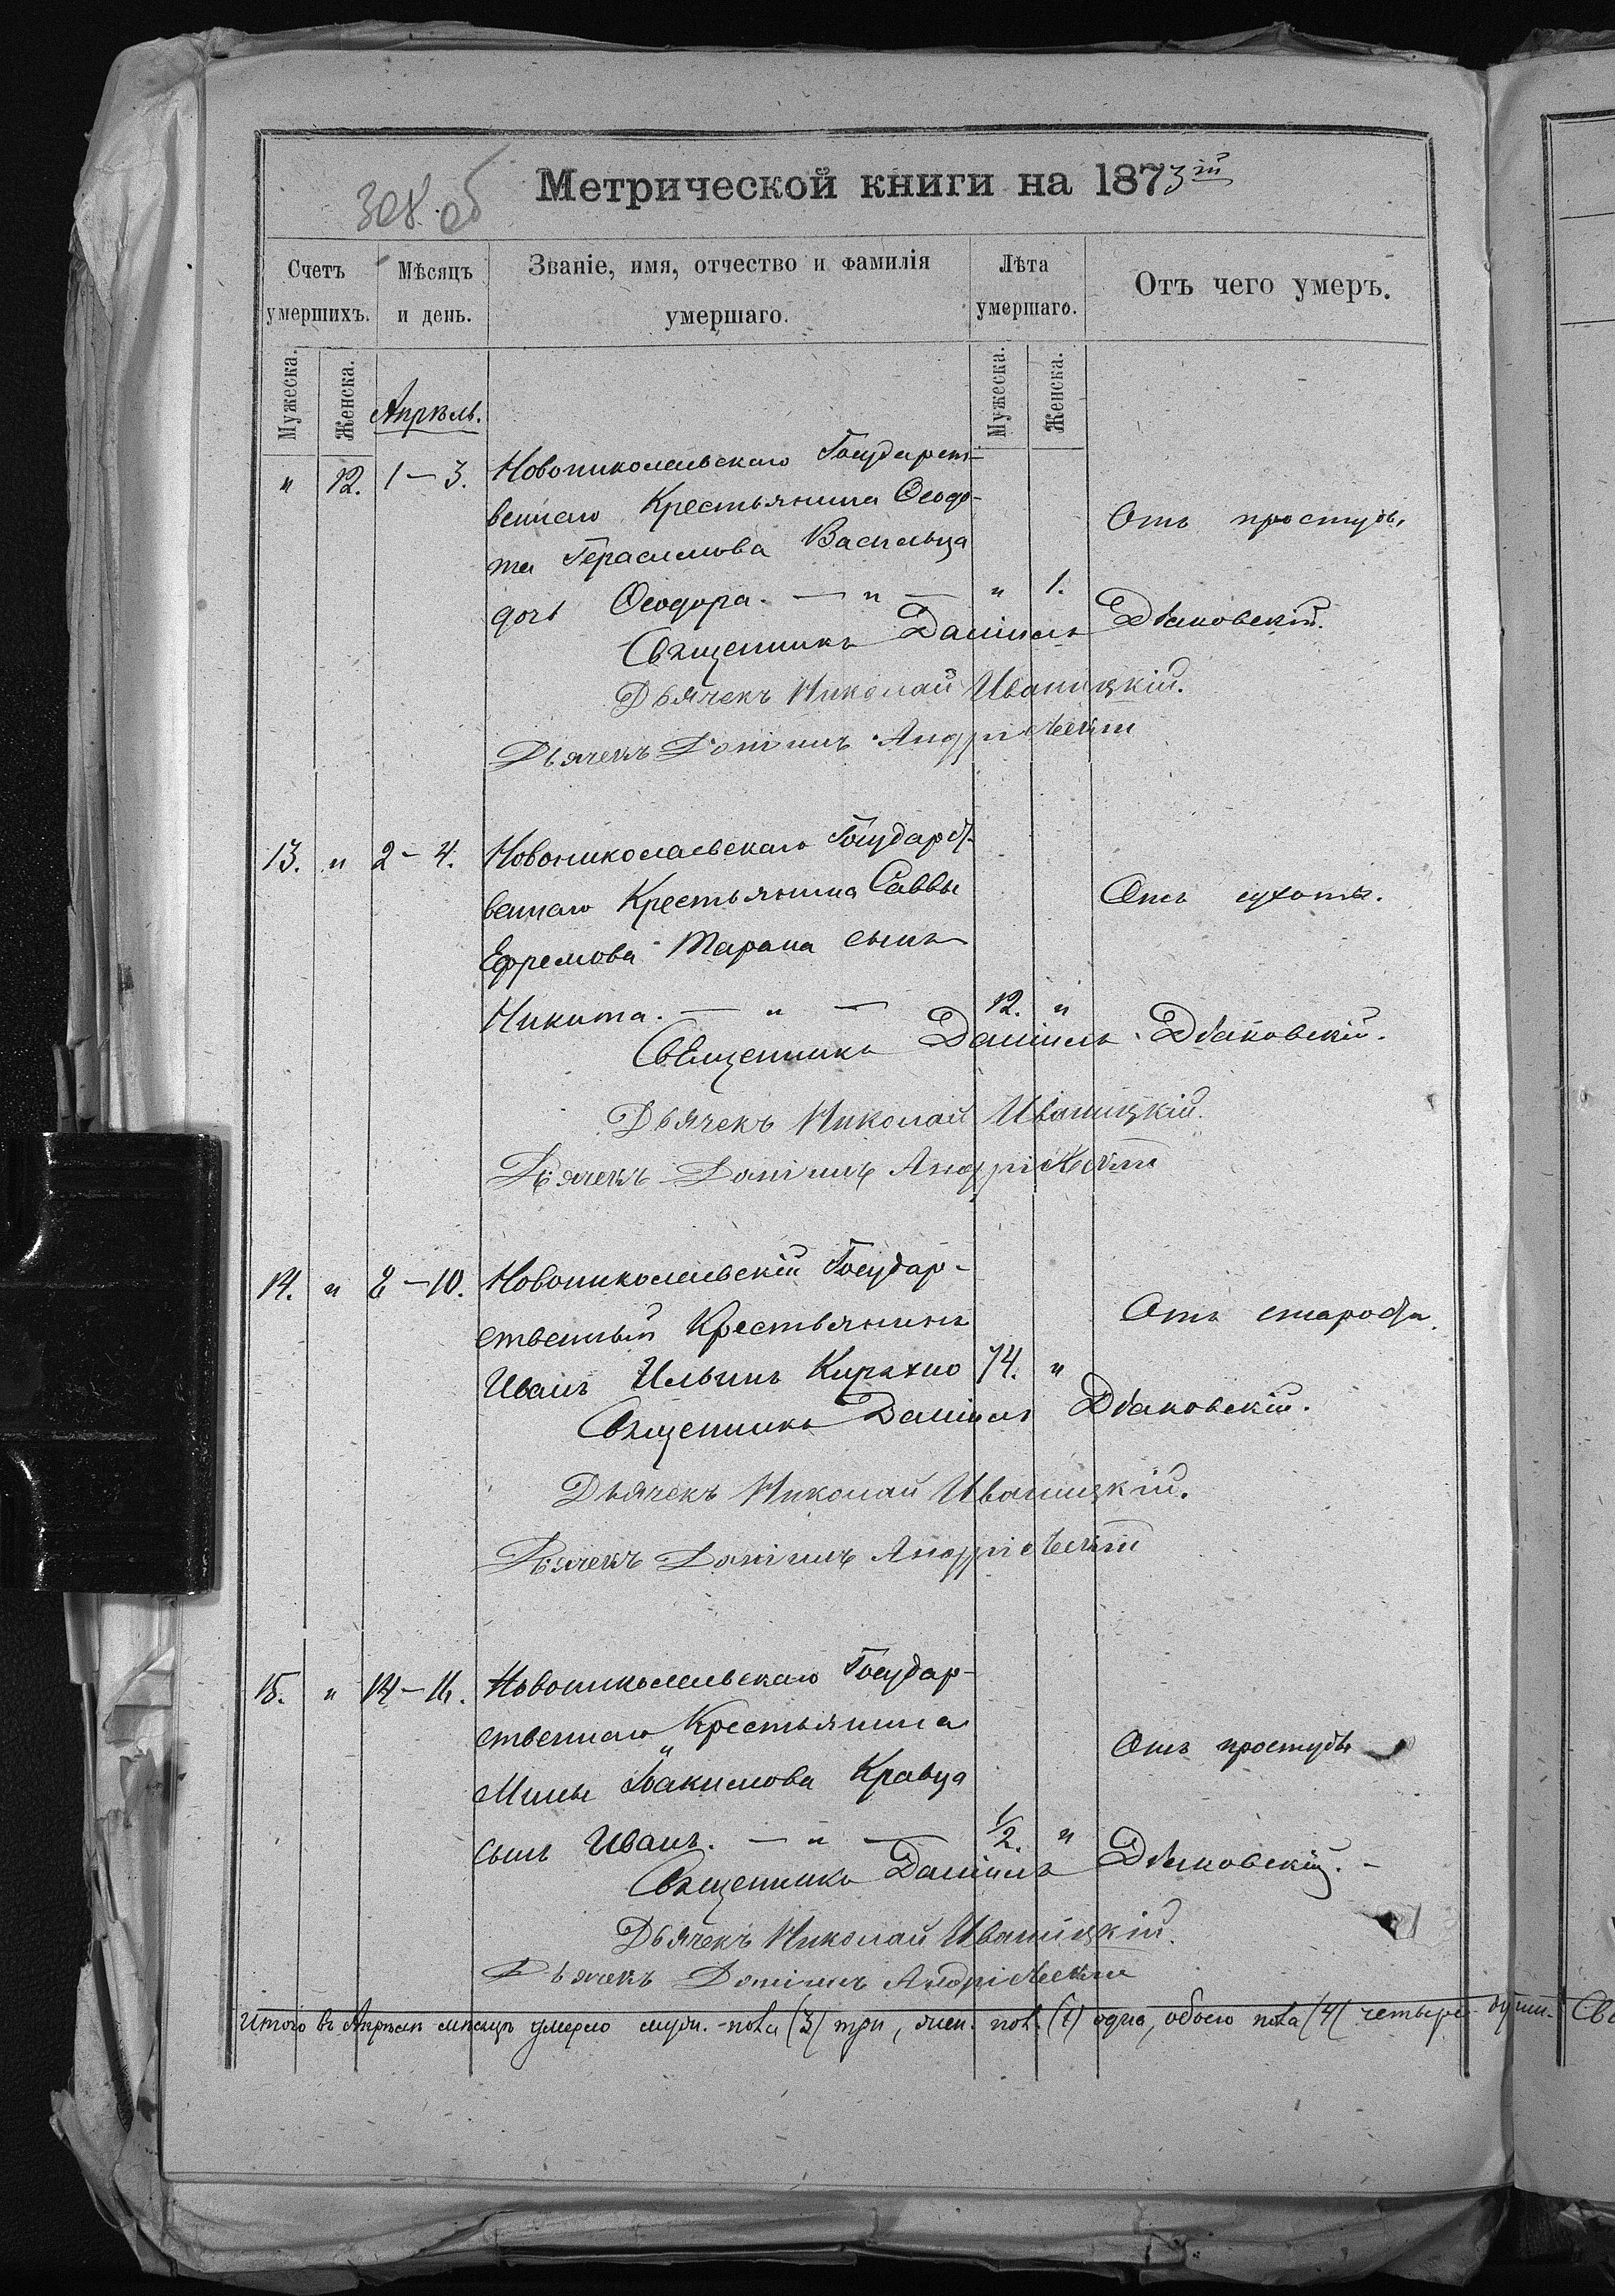 308 об
Метрической книги на 1873 ій
Счетъ умершихъ.
Мѣсяцъ и день.
Званіе, имя, отчество и фамилія умершаго.
Лѣта умершаго.
Отъ чего умеръ.
Мужеска. Женска.
Мужеска. Женска.
Апрѣль.
" 12. 1–3. Новониколаевскаго Государст-
веннаго Крестьянина Ѳеодо-
та Герасимова Васильца Отъ простуды,
дочь Ѳеодора. — " — " 1.
Священникъ Даніилъ Дбановскій.
Дьячекъ Николай Иваницкій.
Дьячекъ Даніилъ Андріевскій
13. " 2–4. Новониколаевскаго Государст-
веннаго Крестьянина Саввы Отъ сухоты.
Ефремова Тарана сынъ
Никита. — " — 12. "
Священникъ Даніилъ Дбановскій.
Дьячекъ Николай Иваницкій.
Дьячекъ Даніилъ Андріевскій
14. " 8–10. Новониколаевскій Государ-
ственный Крестьянинъ Отъ старости.
Иванъ Ильинъ Кирѧхно 74. "
Священникъ Даніилъ Дбановскій.
Дьячекъ Николай Иваницкій.
Дьячекъ Даніилъ Андріевскій
15. " 14–16. Новониколаевскаго Государ-
ственнаго Крестьянина Отъ простуды
Мины Іоакимова Кравца
сынъ Иванъ. — " — 1/2. "
Священникъ Даніилъ Дбановскій. –
Дьячекъ Николай Иваницкій.
Дьячекъ Даніилъ Андріевскій
Итого въ Апрѣлѣ мѣсяцѣ умерло муж. пола (3) три, жен. пол. (1) одна, обоего пола (4) четыре души. Св